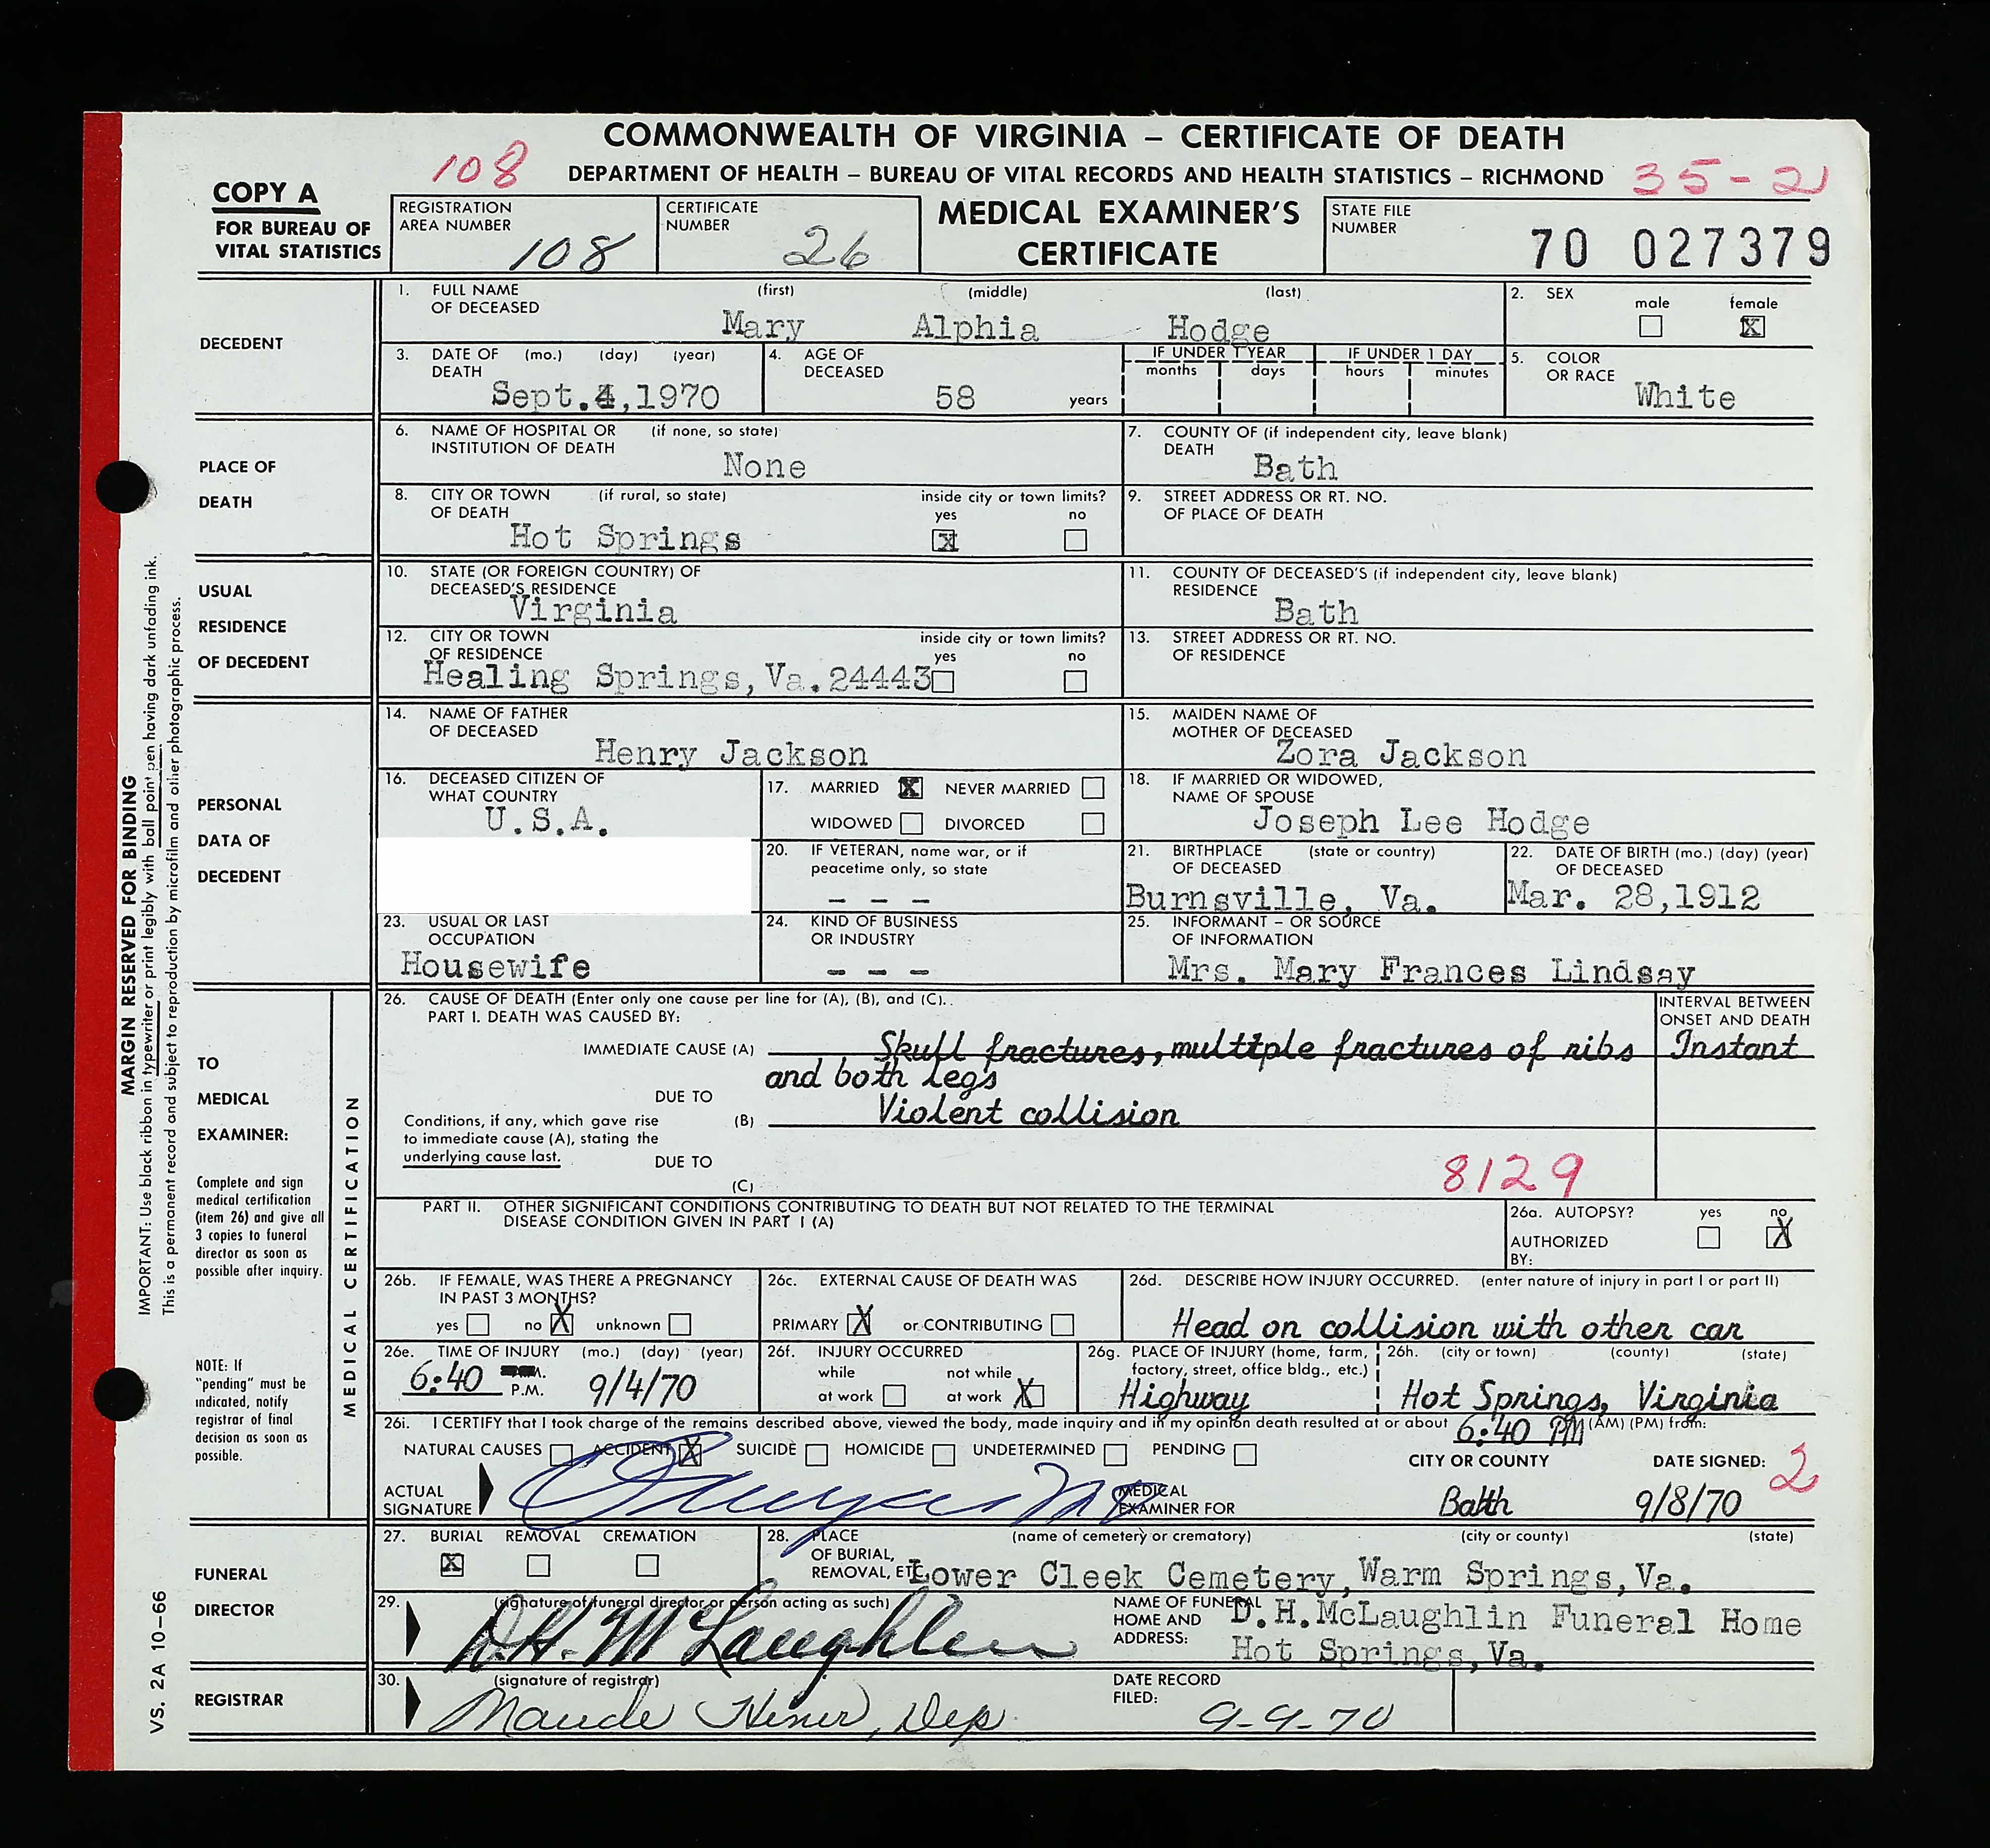 COMMONWEALTH OF VIRGINIA – CERTIFICATE OF DEATH
108 DEPARTMENT OF HEALTH – BUREAU OF VITAL RECORDS AND HEALTH STATISTICS – RICHMOND 35-2
COPY A
FOR BUREAU OF VITAL STATISTICS
REGISTRATION AREA NUMBER 108
CERTIFICATE NUMBER 26
MEDICAL EXAMINER'S CERTIFICATE
STATE FILE NUMBER 70 027379
DECEDENT
1. FULL NAME OF DECEASED (first) (middle) (last)
Mary Alphia Hodge
2. SEX male female X
3. DATE OF DEATH (mo.) (day) (year)
Sept.4,1970
4. AGE OF DECEASED 58 years
IF UNDER 1 YEAR months days
IF UNDER 1 DAY hours minutes
5. COLOR OR RACE White
PLACE OF DEATH
6. NAME OF HOSPITAL OR INSTITUTION OF DEATH (if none, so state)
None
7. COUNTY OF DEATH (if independent city, leave blank)
Bath
8. CITY OR TOWN OF DEATH (if rural, so state)
Hot Springs
inside city or town limits? yes X no
9. STREET ADDRESS OR RT. NO. OF PLACE OF DEATH
USUAL RESIDENCE OF DECEDENT
10. STATE (OR FOREIGN COUNTRY) OF DECEASED'S RESIDENCE
Virginia
11. COUNTY OF DECEASED'S RESIDENCE (if independent city, leave blank)
Bath
12. CITY OR TOWN OF RESIDENCE
Healing Springs, Va.24443
inside city or town limits? yes no
13. STREET ADDRESS OR RT. NO. OF RESIDENCE
PERSONAL DATA OF DECEDENT
14. NAME OF FATHER OF DECEASED
Henry Jackson
15. MAIDEN NAME OF MOTHER OF DECEASED
Zora Jackson
16. DECEASED CITIZEN OF WHAT COUNTRY
U.S.A.
17. MARRIED X NEVER MARRIED
WIDOWED DIVORCED
18. IF MARRIED OR WIDOWED, NAME OF SPOUSE
Joseph Lee Hodge
20. IF VETERAN, name war, or if peacetime only, so state
– – –
21. BIRTHPLACE OF DECEASED (state or country)
Burnsville, Va.
22. DATE OF BIRTH (mo.) (day) (year) OF DECEASED
Mar. 28,1912
23. USUAL OR LAST OCCUPATION
Housewife
24. KIND OF BUSINESS OR INDUSTRY
– – –
25. INFORMANT – OR SOURCE OF INFORMATION
Mrs. Mary Frances Lindsay
MARGIN RESERVED FOR BINDING
IMPORTANT: Use black ribbon in typewriter or print legibly with ball point pen having dark unfading ink.
This is a permanent record and subject to reproduction by microfilm and other photographic process.
TO MEDICAL EXAMINER:
Complete and sign medical certification (item 26) and give all 3 copies to funeral director as soon as possible after inquiry.
NOTE: If "pending" must be indicated, notify registrar of final decision as soon as possible.
MEDICAL CERTIFICATION
26. CAUSE OF DEATH (Enter only one cause per line for (A), (B), and (C).
PART I. DEATH WAS CAUSED BY:
INTERVAL BETWEEN ONSET AND DEATH
IMMEDIATE CAUSE (A) Skull fractures, multiple fractures of ribs Instant
and both legs
DUE TO
Conditions, if any, which gave rise to immediate cause (A), stating the underlying cause last.
(B) Violent collision
DUE TO
(C)
8129
PART II. OTHER SIGNIFICANT CONDITIONS CONTRIBUTING TO DEATH BUT NOT RELATED TO THE TERMINAL DISEASE CONDITION GIVEN IN PART I (A)
26a. AUTOPSY? yes no X
AUTHORIZED BY:
26b. IF FEMALE, WAS THERE A PREGNANCY IN PAST 3 MONTHS?
yes no X unknown
26c. EXTERNAL CAUSE OF DEATH WAS
PRIMARY X or CONTRIBUTING
26d. DESCRIBE HOW INJURY OCCURRED. (enter nature of injury in part I or part II)
Head on collision with other car
26e. TIME OF INJURY (mo.) (day) (year)
6:40 P.M. 9/4/70
26f. INJURY OCCURRED
while at work not while at work X
26g. PLACE OF INJURY (home, farm, factory, street, office bldg., etc.)
Highway
26h. (city or town) (county) (state)
Hot Springs, Virginia
26i. I CERTIFY that I took charge of the remains described above, viewed the body, made inquiry and in my opinion death resulted at or about 6:40 PM (AM) (PM) from:
NATURAL CAUSES ACCIDENT X SUICIDE HOMICIDE UNDETERMINED PENDING
ACTUAL SIGNATURE
MEDICAL EXAMINER FOR
CITY OR COUNTY
Bath
DATE SIGNED: 2
9/8/70
FUNERAL DIRECTOR
27. BURIAL X REMOVAL CREMATION
28. PLACE OF BURIAL, REMOVAL, ETC. (name of cemetery or crematory) (city or county) (state)
Lower Cleek Cemetery, Warm Springs, Va.
29. (signature of funeral director or person acting as such)
D.H. McLaughlin
NAME OF FUNERAL HOME AND ADDRESS:
D.H.McLaughlin Funeral Home
Hot Springs, Va.
REGISTRAR
30. (signature of registrar)
Maude Hiner, Dep.
DATE RECORD FILED:
9-9-70
VS. 2A 10–66